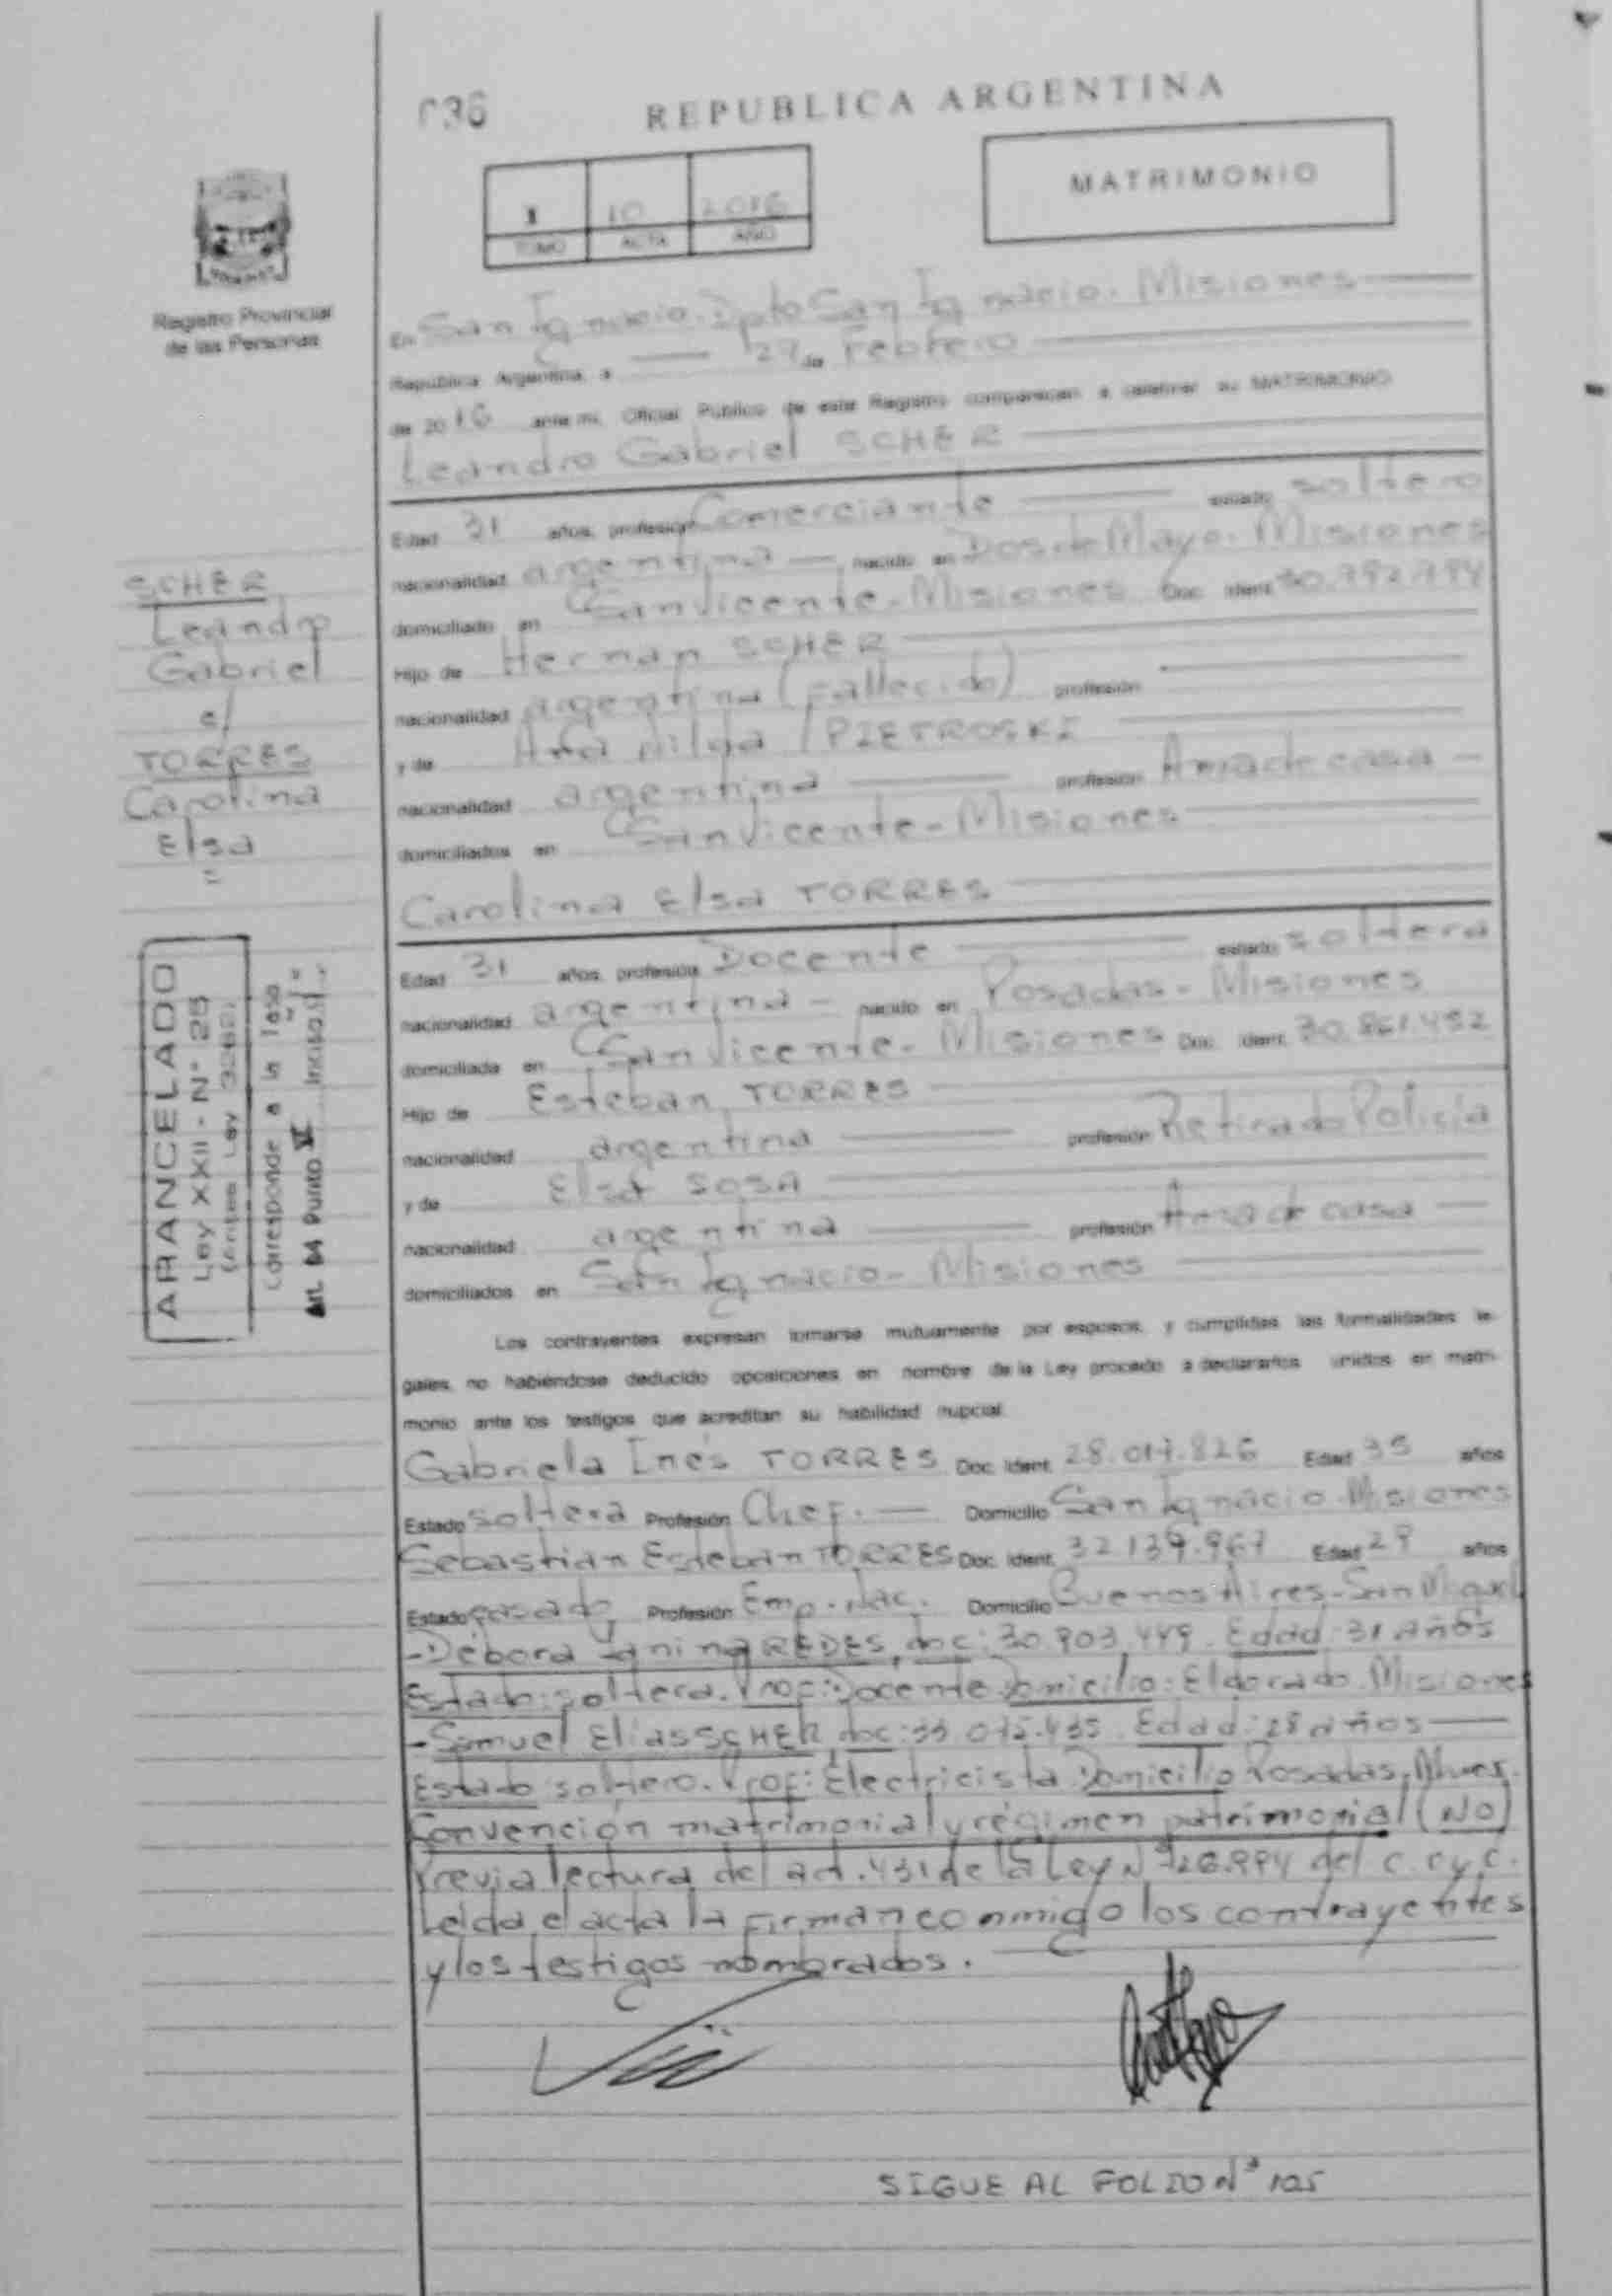 036
REPUBLICA ARGENTINA
MATRIMONIO
1 10 2016
TOMO ACTA AÑO
Registro Provincial
de las Personas
En San Ignacio. Dpto San Ignacio. Misiones
República Argentina, a de Febrero
de 2016 ante mí, Oficial Público de este Registro comparecen a celebrar su MATRIMONIO
Leandro Gabriel SCHER
Edad 31 años, profesión Comerciante estado soltero
nacionalidad argentina nacido en Dos de Mayo. Misiones
domiciliado en San Vicente - Misiones Doc. Ident.
Hijo de Hernan SCHER
nacionalidad argentina (fallecido) profesión
y de Ana PIETROSKI
nacionalidad argentina profesión Ama de casa
domiciliados en San Vicente - Misiones
Carolina Elsa TORRES
Edad 31 años, profesión Docente estado soltera
nacionalidad argentina - nacido en Posadas - Misiones
domiciliada en San Vicente - Misiones Doc. Ident. 30.861.452
Hijo de Esteban TORRES
nacionalidad argentina profesión Retirado Policía
y de Elsa SOSA
nacionalidad argentina profesión Ama de casa
domiciliados en San Ignacio - Misiones
Los contrayentes expresan tomarse mutuamente por esposos, y cumplidas las formalidades le-
gales, no habiéndose deducido oposiciones, en nombre de la Ley procedo a declararlos unidos en matri-
monio ante los testigos que acreditan su habilidad nupcial.
Gabriela Inés TORRES Doc. Ident. 28.017.826 Edad 35 años
Estado soltera Profesión Chef. Domicilio San Ignacio. Misiones
Sebastian Esteban TORRES Doc. Ident. 32.139.967 Edad 29 años
Estado casado Profesión Emp. Nac. Domicilio Buenos Aires - San Miguel
- Débora Yanina REDES, doc: 30.903.449. Edad: 31 años
Estado: soltera. Prof: Docente Domicilio: Eldorado. Misiones
- Samuel Elias SCHER, doc: 33.075.435. Edad: 28 años
Estado: soltero. Prof: Electricista Domicilio Posadas, Mnes.
Convención matrimonial y régimen patrimonial (NO)
Previa lectura del art. 431 de la Ley Nº 26.994 del C. C y C.
Leída el acta la firman conmigo los contrayentes
y los testigos nombrados.
SIGUE AL FOLIO Nº 125
SCHER
Leandro
Gabriel
c/
TORRES
Carolina
Elsa
=
ARANCELADO
Ley XXII - Nº 25
(Antes Ley
Corresponde a la Tasa
Art. 64 Punto VI Inciso